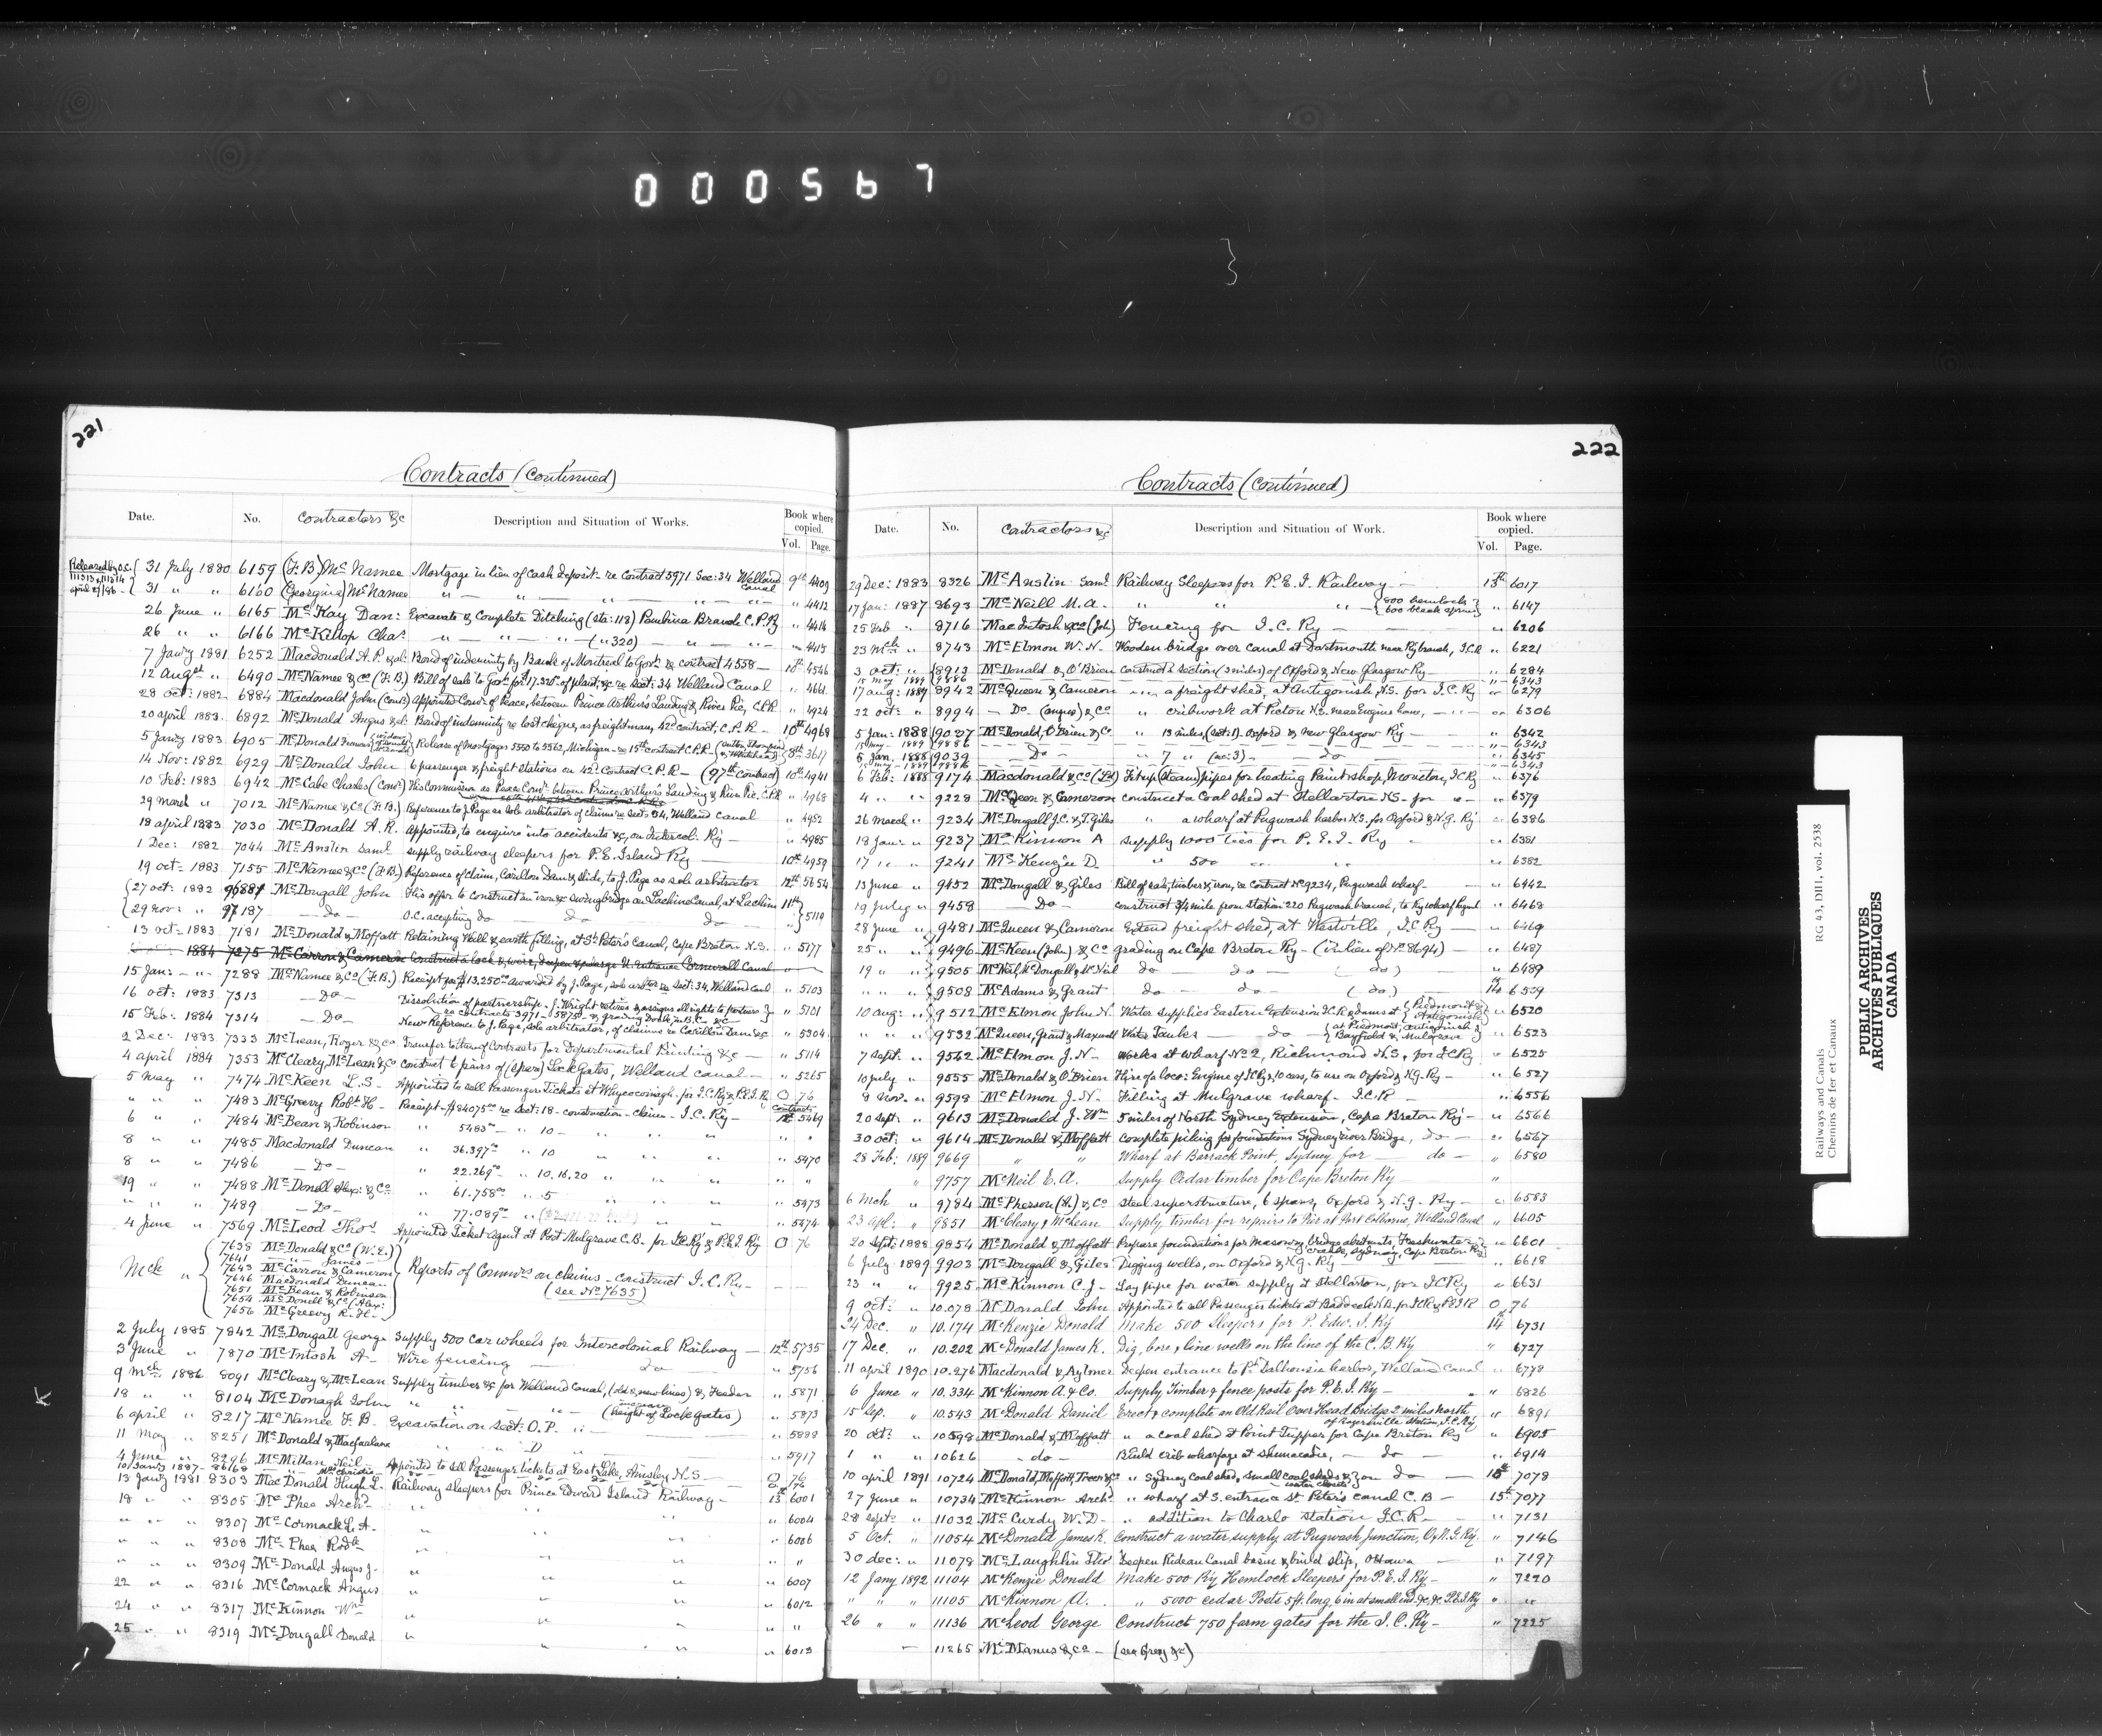 000567
221
Contracts (continued)
Date. No. Contractors &c Description and Situation of Works. Book where copied.
Vol. Page.
Released by O.C. 111513 & 111514 april 27/86 -
31 July 1880 6159 (F.B) McNamee Mortgage in lieu of cash deposit re Contract 5971 Sec: 34 Welland Canal 9th 4409
31 " " 6160 (Georgina) McNamee " — " — " — " — " — 4412
26 June " 6165 McKay Dan: Excavate & complete Ditching (sta: 113) Pembina Branch C.P.Ry " 4414
26 " " 6166 McKillop Chas " — " — " — (" 320) — " — " — 4415
7 Jany 1881 6252 Macdonald A.P. & al: Bond of indemnity by Bank of Montreal to Govt. re contract 4558 — 10th 4546
12 Augst " 6490 McNamee & Co (F.B) Bill of sale to Govt for $17.320 of plant, &c re Sect: 34 Welland Canal " 4661
28 Oct: 1882 6884 Macdonald John (Comr) Appointed Comr. of Peace, between Prince Arthur's Landing & River Pic, C.P.R. " 4924
20 april 1883 6892 McDonald Angus & al: Bond of indemnity re lost cheque, as freightman, 42d contract, C.P.R — 10th 4968
5 Jany 1883 6905 McDonald Release of Mortgages 5550 to 5562, Michigan — re 15th contract C.P.R — (Sutton, Thompson & Whitehead) 8th 3617
14 Nov: 1882 6929 McDonald John 6 passenger & freight stations on 42d Contract C.P.R — (97th Contract) 10th 4941
10 Feb: 1883 6942 McCabe Charles (Comr) His Commission as Peace Comr. between Prince Arthur's Landing & River Pic. C.P.R " 4968
29 March " 7012 McNamee & Co (F.B.) Reference to J. Page as sole arbitrator of claims re Sect: 34, Welland Canal " 4952
18 april 1883 7030 McDonald A.R. Appointed, to enquire into accidents &c, on Intercol: Ry — " 4985
1 Dec: 1882 7044 McAuslin Saml Supply railway sleepers for P.E. Island Ry — 10th 4959
19 oct: 1883 7155 McNamee & Co (F.B.) Reference of claim, Carillon Dam & slide, to J. Page as sole arbitrator 12th 5654
27 oct: 1882 96887 McDougall John His offer to construct an iron swing bridge on Lachine Canal, at Lachine 11th
29 nov: " 97187 — Do — O.C. accepting do — do — do — " 5119
13 oct- 1883 7181 McDonald & Moffatt Retaining Wall & earth filling, at St. Peter's canal, Cape Breton N.S. " 5177
1884 7275 McCarron & Cameron Construct a lock & weir, deepen & enlarge U. entrance Cornwall Canal
15 Jan: — " 7288 McNamee & Co (F.B.) Receipt for $13.250 awarded by J. Page, sole arbitor re Sect: 34, Welland Canl " 5103
16 oct: 1883 7313 — Do — Dissolution of partnership. J. Wright retires & assigns all rights to partners
re Contracts 3971 — 5875 — & graving Dock in B.C. &c " 5101
15 Feb: 1884 7314 — Do — New Reference to J. Page, sole arbitrator, of claims re Carillon Dam &c " 5304
2 Dec: 1883 7333 McLean, Roger & Co Transfer to them of Contracts for Departmental Printing &c — " 5114
4 april 1884 7353 McCleary, McLean & Co Construct 6 pairs of (spare) Lock Gates, Welland Canal — " 5265
5 May " 7474 McKeen L.S — Appointed to sell Passenger Tickets at Whycocomagh for I.C.Ry & P.E.I.R O 76
" " " 7483 McGreevy Robt H — Receipt — $84075 re Sect: 18 — construction — claim — I.C. Ry — Contracts 12 5469
6 " " 7484 McBean & Robinson " 5483 — " 10 — " " " " "
8 " " 7485 Macdonald Duncan " 36.397 " 10 " " " " 5470
8 " " 7486 — Do — " 22.269 " 10.16.20 " " " "
19 " " 7488 McDonell Alex: & Co " 61.758 " 5 " " " " 5473
" " " 7489 — Do — " 77.089 " " " " 5474
4 June " 7569 McLeod Thos Appointed Ticket agent at Port Mulgrave C.B. for I.C.Ry & P.E.I.Ry O 76
7638 McDonald & Co (W.E.)
7641 — " — James —
7643 McCarron & Cameron
Mck " 7646 Macdonald Duncan Reports of Commrs on claims — construct I.C. Ry —
7651 McBean & Robinson (see No 7635)
7654 McDonell & Co (Alex:
7656 McGreevy R. H. —
2 July 1885 7842 McDougall George Supply 500 car wheels for Intercolonial Railway — 12th 5735
3 June " 7870 McIntosh A — Wire fencing — do — " 5756
9 Mch 1886 8091 McCleary & McLean Supply timber &c for Welland Canal, (old & new lines) & Feeder " 5871
18 " " 8104 McDonagh John " " " — (increase height of Lock gates) " 5873
6 april " 8217 McNamee F.B. Excavation on sect: O.P. " — " 5888
11 May " 8251 McDonald & Macfarlane " " D — " 5917
4 June " 8296 McMillan Neil — Appointed to sell Passenger tickets at East Lake, Ainsley N.S — O 76
10 Jany 1887 — 86168 — " — Mrs Christie — do — do — O 76
13 Jany 1881 8303 MacDonald Hugh L. Railway sleepers for Prince Edward Island Railway — 13th 6001
18 " " 8305 McPhee Archd " " " " 6004
" " " 8307 McCormack L.A. " " " " 6006
" " " 8308 McPhee Rodk " " " "
" " " 8309 McDonald Angus J. " " " " 6007
22 " " 8316 McCormack Angus " " " " 6012
24 " " 8317 McKinnon Wm " " " "
25 " " 8319 McDougall Donald " " " " 6013
222
Contracts (continued)
Date. No. Contractors &c Description and Situation of Work. Book where copied.
Vol. Page.
29 Dec: 1883 8326 McAuslin Saml Railway Sleepers for P.E.I. Railway — 13th 6017
17 Jan: 1887 8693 McNeill M.A. " " " — {800 hemlocks 600 black spruce} " 6147
25 Feb " 8716 MacIntosh & Co (John) Fencing for I.C. Ry — " 6206
23 Mch " 8743 McElmon W.N. Wooden bridge over canal at Dartmouth, near Ry branch, I.C.R " 6221
3 oct: " 8913 McDonald & O'Brien construct a section (3 miles) of Oxford & New Glasgow Ry — " 6284
15 may 1889 9886 " 6343
17 aug: 1887 8942 McQueen & Cameron " " a freight shed, at Antigonish, N.S. for I.C. Ry " 6279
22 oct: " 8994 — Do — (angus) & Co " cribwork at Pictou N.S. near Engine house, — " — 6306
5 Jan: 1888 9027 McDonald, O'Brien & Co " 13 miles (sect: 1). Oxford & New Glasgow Ry — " 6342
15 may — 1889 9886 " 6343
5 Jan. 1888 9039 — Do — " 7 " (sec: 3) — — do — " 6345
15 may — 1889 9886 " 6343
6 Feb: 1888 9174 Macdonald & Co (Ld) Fit up (steam) pipes for heating Paint shop, Moncton, I.C Ry " 6376
4 " " 9228 McQueen & Cameron construct a Coal shed at Stellarton N.S — for " — " 6379
26 March " 9234 McDougall J.C. & T. Giles " a wharf at Pugwash harbor N.S. for Oxford & N.G. Ry " 6386
18 Jan: " 9237 McKinnon A Supply 1000 ties for P.E.I. Ry — " 6381
17 " " 9241 McKenzie D " 500 " " " 6382
13 June " 9452 McDougall & Giles Bill of sale, timber & iron, re Contract No 9234, Pugwash wharf — " 6442
19 July " 9458 — Do — Construct 3/4 mile from station 220 Pugwash branch, to Ry wharf " 6468
28 June " 9481 McQueen & Cameron Extend freight shed, at Westville, I.C. Ry — " 6469
25 " " 9496 McKeen (John) & Co grading on Cape Breton Ry — (in lieu of No 8694) — " 6487
19 " " 9505 McNeil, McDougall & McNeil do — do — (do) " 6489
" " " 9508 McAdams & Grant do — do (do.) 14 6509
10 aug: " 9512 McElmon John N. Water supplies Eastern Extension I.C.R & dams at {Piedmont & Antigonish} " 6520
" " " 9532 McQueen, Grant & Maxwell Water Tanks — do {at Piedmont, Antigonish, Bayfield & Mulgrave} " 6523
7 Sept. " 9542 McElmon J.N — Works at wharf No 2, Richmond N.S, for I.C Ry " 6525
10 July " 9555 McDonald & O'Brien Hire of loco: Engine of I.C Ry & 10 cars, to use on Oxford & N.G. Ry — " 6527
8 Nov. " 9598 McElmon J.N — Filling at Mulgrave wharf — I.C.R — " 6556
20 sept: " 9613 McDonald J. Wm 5 miles of North Sydney Extension, Cape Breton Ry — " 6566
30 oct: " 9614 McDonald & Moffatt complete piling for foundations Sydney river Bridge, do — " 6567
28 Feb: 1889 9669 " " Wharf at Barrack Point, Sydney for — do — " 6580
" 9757 McNeil E.A. Supply Cedar timber for Cape Breton Ry "
6 Mch " 9784 McPherson (A.) & Co steel superstructure, 6 spans, Oxford & N.G. Ry — " 6583
23 apl: " 9851 McCleary & McLean Supply timber for repairs to Pier at Port Colborne, Welland Canal " 6605
20 Sept: 1888 9854 McDonald & Moffatt Prepare foundations for Masonry bridge abutments, Freshwater Creek, Sydney, Cape Breton Ry " 6601
6 July 1889 9903 McDougall & Giles Digging wells, on Oxford & N.G. Ry — " 6618
23 " " 9925 McKinnon C.J — Lay pipe for water supply at Stellarton, for I.C Ry " 6631
9 oct: " 10.078 McDonald John Appointed to sell Passenger tickets at Baddeck N.B. for I.C.R & P.E.I R O 76
24 Dec. " 10.174 McKenzie Donald Make 500 Sleepers for P. Edw. I. Ry 14 6731
17 Dec. " 10.202 McDonald James K. Dig, bore, & line wells on the line of the C.B. Ry " 6727
11 april 1890 10.276 Macdonald & Aylmer Deepen entrance to Pt Dalhousie harbor, Welland Canal " 6778
6 June " 10.334 McKinnon A. & Co. Supply Timber & fence posts for P.E.I. Ry — " 6826
15 Sep. " 10.543 McDonald Daniel Erect & complete an Old Rail Over Head Bridge 2 miles North of Rogersville station, I.C. Ry " 6891
20 oct: " 10598 McDonald & Moffatt " a coal shed at Point Tupper for Cape Breton Ry " 6905
1 " " 10626 — do — Build crib wharfage at Shenacadie, — do — " 6914
10 april 1891 10724 McDonald, Moffatt, Treen & Co " Sydney coal shed, small coal sheds & water closets} on do — 15th 7078
27 June " 10734 McKinnon Archd " wharf at S. entrance St. Peter's canal C.B — 15th 7077
28 Sept: " 11032 McCurdy W.D — " addition to Charlo station I.C.R — " 7131
5 Oct. " 11054 McDonald James K. Construct a water supply at Pugwash Junction, O. & N.G. Ry. " 7146
30 dec: " 11078 McLaughlin Deepen Rideau Canal basin & build slip, Ottawa — " 7197
12 Jany 1892 11104 McKenzie Donald Make 500 Ry Hemlock Sleepers for P.E.I. Ry — " 7220
" " " 11105 McKinnon A. " 5000 cedar Posts 5 ft. long, 6 in at small end, &c, &c P.E.I Ry " "
26 " " 11136 McLeod George Construct 750 farm gates for the I.C. Ry — " 7225
— 11265 McManus & Co — (see Grey &c)
Railways and Canals
Chemins de fer et Canaux
RG 43, DIII, vol. 2538
PUBLIC ARCHIVES
ARCHIVES PUBLIQUES
CANADA